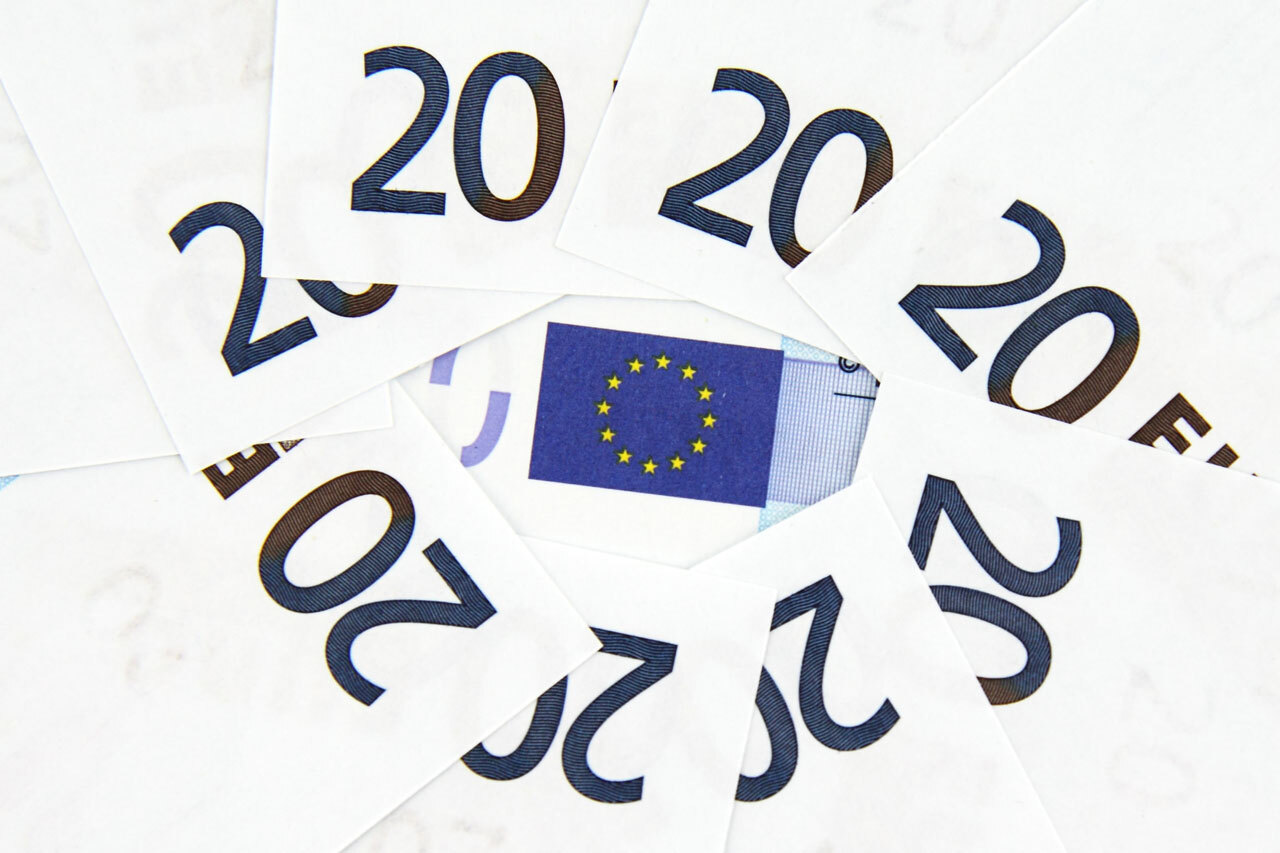 20
20
20
20 E
©
20
20
20
20